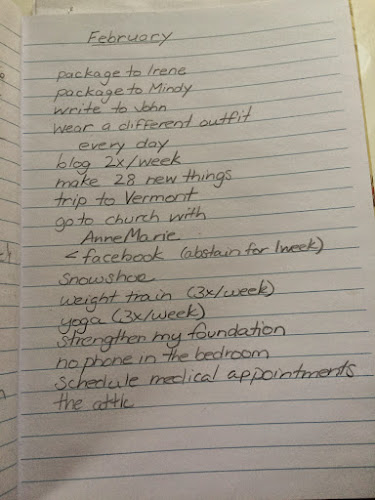 February
package to Irene
package to Mindy
write to John
wear a different outfit
every day
blog 2x/week
make 28 new things
trip to Vermont
go to church with
AnneMarie
< facebook (abstain for 1 week)
snowshoe
weight train (3x/week)
yoga (3x/week)
strengthen my foundation
no phone in the bedroom
schedule medical appointments
the attic